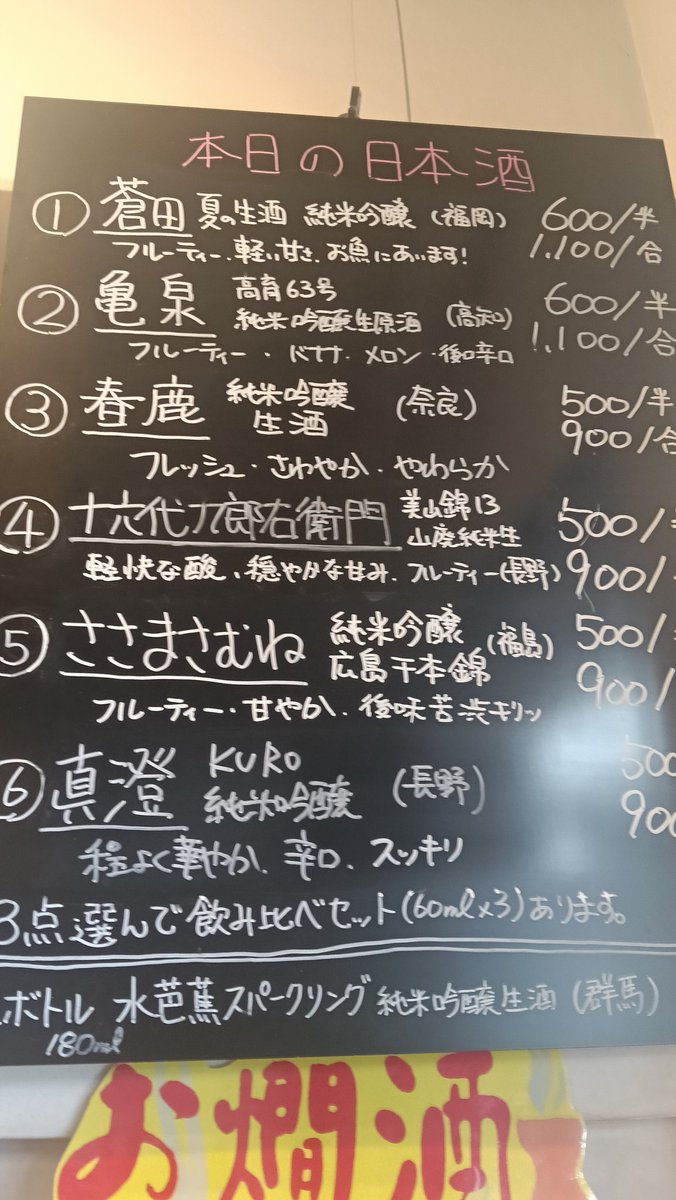 本日の日本酒
① 蒼田 夏の生酒 純米吟醸 (福岡) 600/半
フルーティー、軽い甘さ、お魚にあいます! 1,100/合
② 亀泉 高育63号 600/半
純米吟醸生原酒 (高知) 1,100/合
フルーティー・バナナ・メロン・後口辛口
③ 春鹿 純米吟醸 (奈良) 500/半
生酒 900/合
フレッシュ・さわやか・やわらか
④ 十六代九郎右衛門 美山錦13 500/
山廃純米生
軽快な酸、穏やかな甘み、フルーティー(長野) 900/
⑤ ささまさむね 純米吟醸 (福島) 500/半
広島千本錦 900/
フルーティー・甘やか・後味苦渋キリッ
⑥ 真澄 KURO 500
純米吟醸 (長野) 900
程よく華やか、辛口、スッキリ
3点選んで飲み比べセット(60ml×3)あります。
ボトル 水芭蕉スパークリング 純米吟醸生酒 (群馬)
180ml
お燗酒